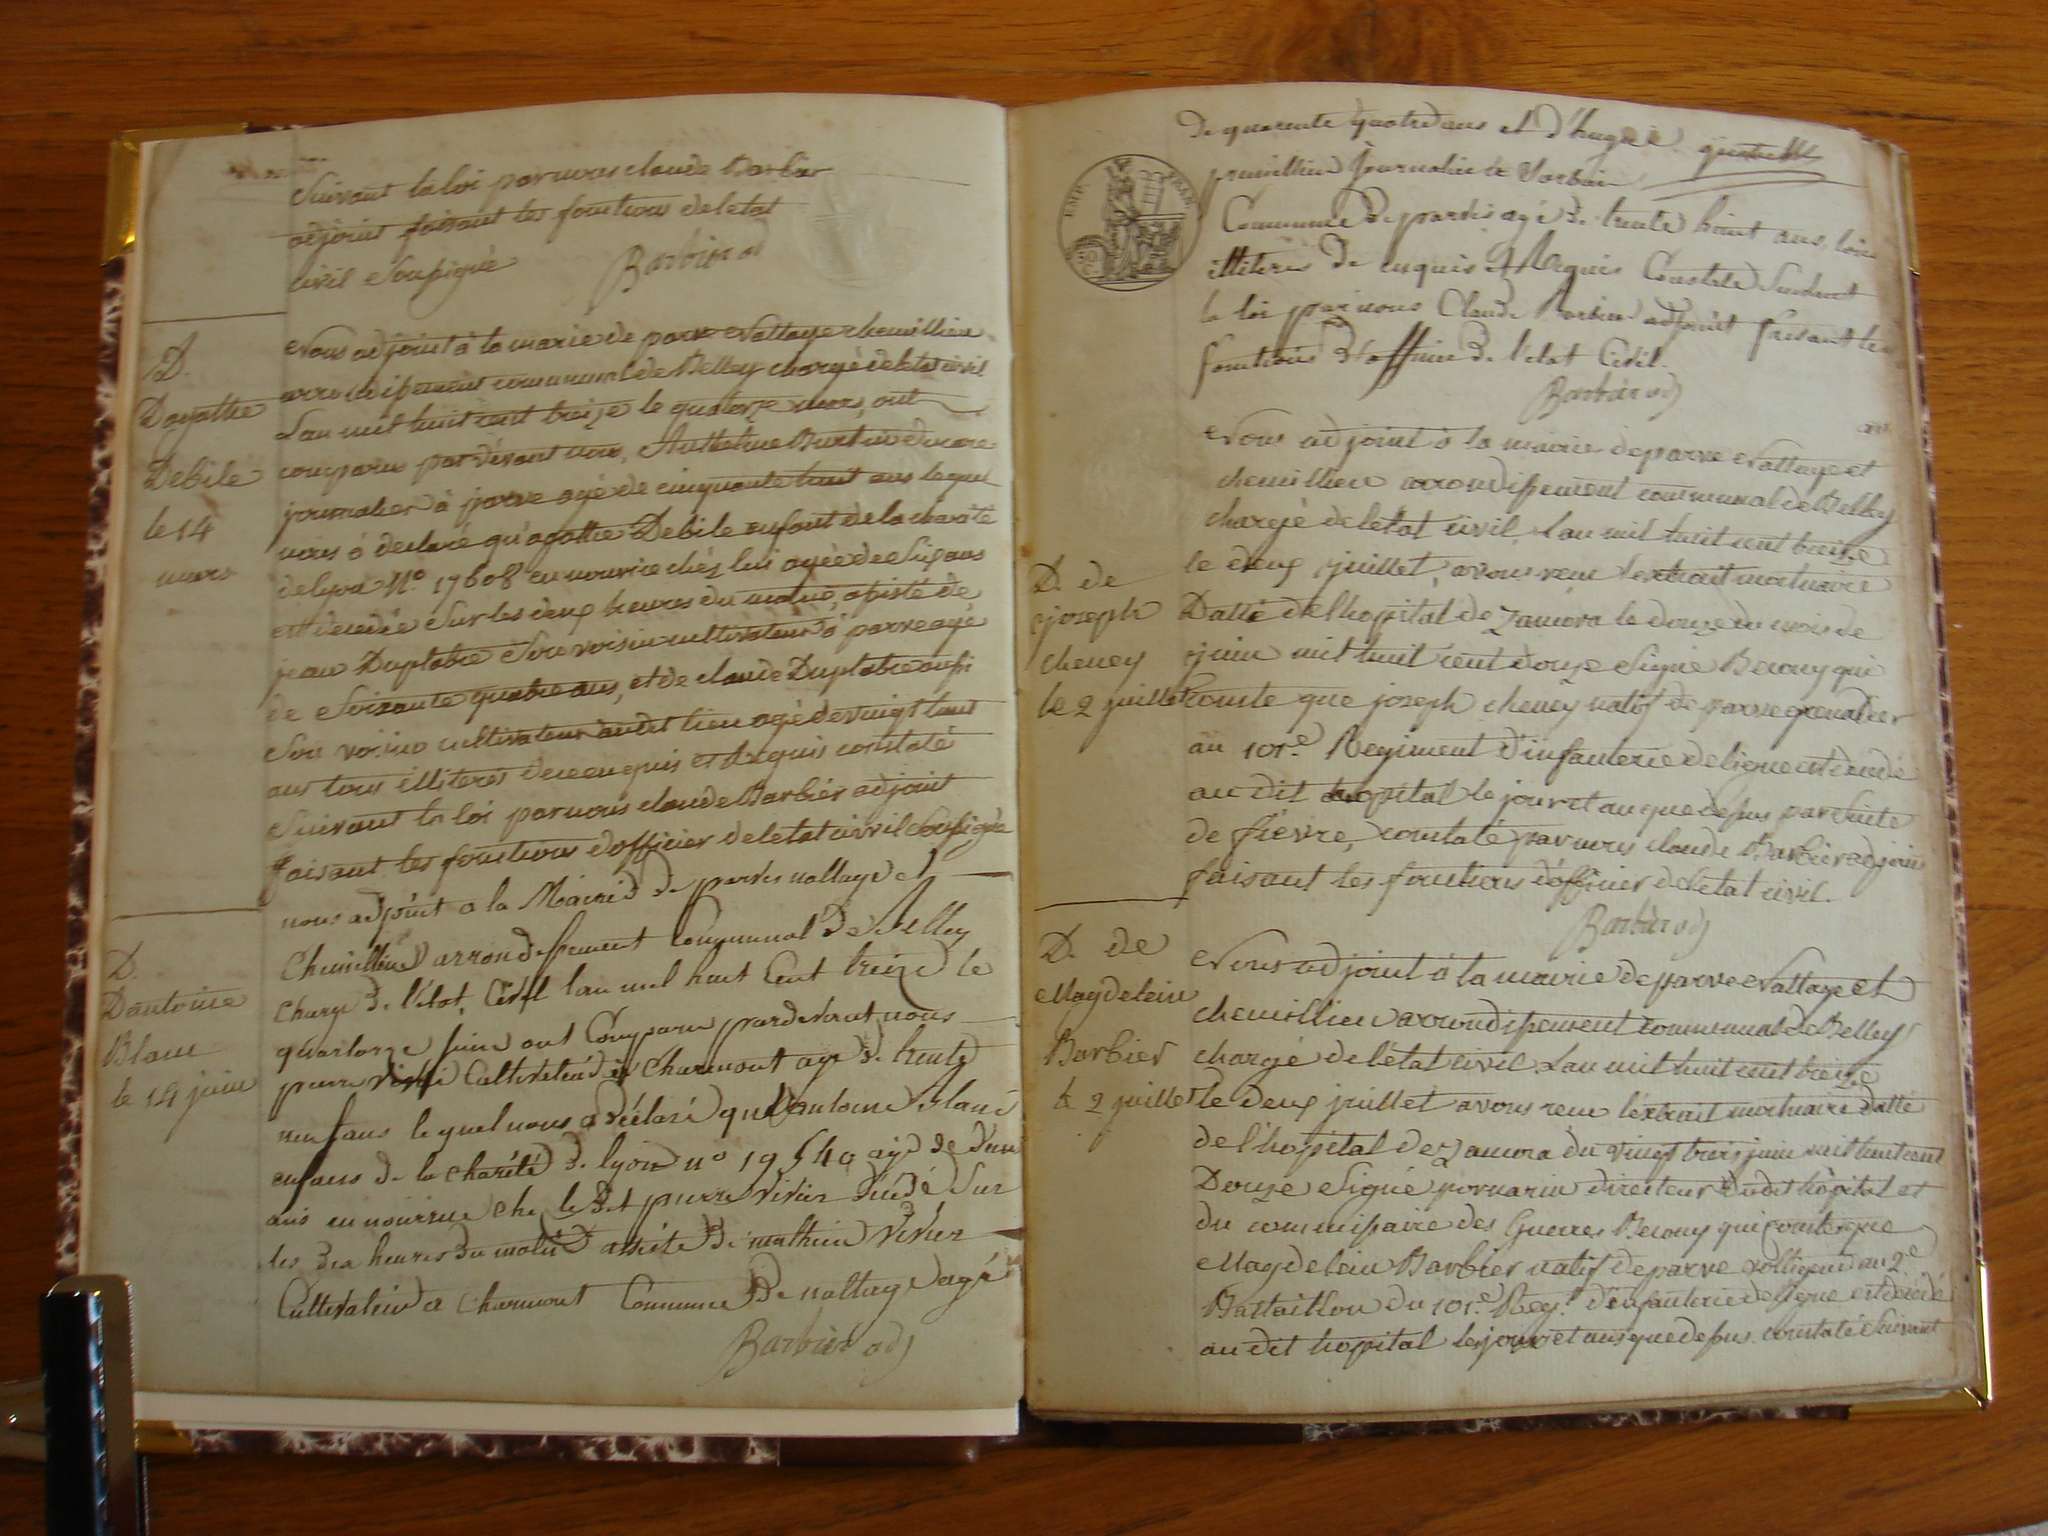 Suivant la loi par nous claude Barbier
adjoint faisant les fonctions de letat
civil Soussigné
Barbier adj
D.
Dagathe
Debile
le 14
mars
Nous adjoint à la marie de parve Nattage chemillieu
arrondissement communal de Belley chargé de letat civil
Lan mil huit cent treize le quatorze mars, ont
comparus par dévant nous, Anthelme
journalier à parve agé de cinquante huit ans lequel
nous à declaré qu'agathe Debile enfant de la charité
de lyon N.o 17608 en nourrice chéz lui agée de Six ans
est decedée Sur les deux heures du matin, asisté de
jean Duplatre Son voisin cultivateur à parve agé
de Soixante quatre ans, et de claude Duplatre aussi
Son voisin cultivateur audit lieu agé de vingt huit
ans tous illiterés de ce enquis et Requis constaté
Suivant la loi par nous claude Barbiér adjoint
faisant les fonctions d'officier de letat civil Soussigné
D.
Dantoine
Blanc
le 14 juin
nous adjoint a la Mairie de parves nattage et
Chemillieu arrondissement Communal De Belley
charge de l'état Civil lan mil huit Cent treize le
quatorze juin ont Comparu pardevant nous
pierre vivié Cultivateur à Charmont age de trente
neuf ans lequel nous a déclaré que Dantoine blanc
enfans de la charité de lyon no 19540 agé de d'un
ans en nourrice che le Dit pierre vivier décédé Sur
les dix heures du matin assisté de mathieu vivier
Cultivateur a charmont Commune De nattage agé
Barbiér adj
de quarente quatre ans et d'hugue
journalier
Commune de parves agé de trente huit ans, tous
illiterés De enquis et Requis Constaté Suivant
la loi par nous Claude Barbier adjoint faisant les
fonctions d'officier de l'etat Civil.
Barbiér adj
D. de
joseph
cheney
le 2 juillet
Nous adjoint à la mairie de parve Nattage et
chemillieu arrondissement communal de Belley
chargé de létat civil, Lan mil huit cent treize
le deux juillet, avons recu lextrait mortuaire
Datté de l'hopital de Zamora le douze du mois de
juin mil huit cent douze Signé Becouy qui
conste que joseph cheney natif de parve grenadier
au 101.e Regiment d'infanterie de ligne est décedé
au dit hopital le jour et an que desus par Suite
de fiévre, constaté par nous claude Barbiér adjoint
faisant les fonctions d'officier de letat civil.
Barbiér adj
D. de
Magdelein
Barbier
le 2 juillet
Nous adjoint à la mairie de parve Nattage et
chemillieu arrondissement communal de Belley
chargé de létat civil Lan mil huit cent treize
le deux juillet avons recu léxtrait mortuaire datté
de l'hopital de Zamora du vingt trois juin mil huit cent
Douze Signé directeur dudit hôpital et
du commissaire des Guerres Becouy qui conste que
Magdelein Barbier natif de parve voltigeur au 2.e
Bataillon du 101.e Reg.t d'infanterie de ligne est décédé
au dit hopital les jour et ans que desus constaté Suivant